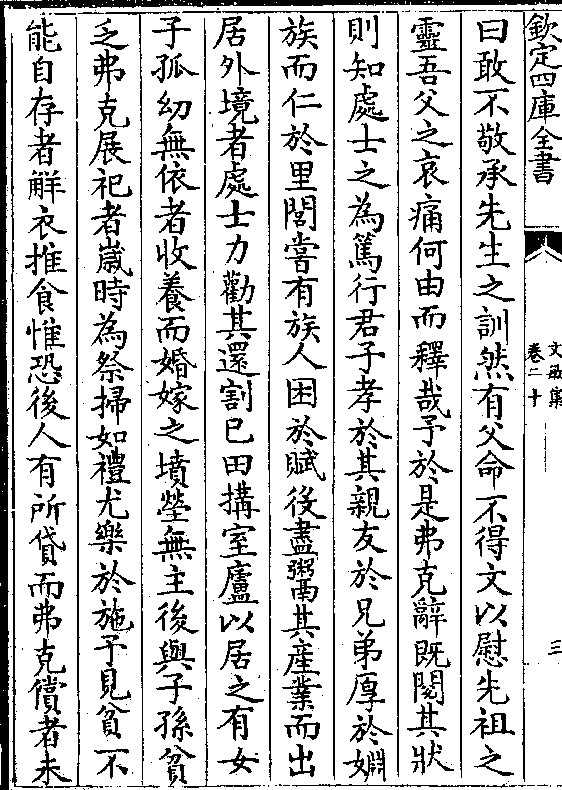 欽定四庫全書
文敏集
卷二十
三
曰敢不敬承先生之訓然有父命不得文以慰先祖之
靈吾父之哀痛何由而釋哉予於是弗克辭既閱其狀
則知處士之為篤行君子孝於其親友於兄弟厚於婣
族而仁於里閭嘗有族人困於賦役盡鬻其產業而出
居外境者處士力勸其還割己田搆室廬以居之有女
子孤幼無依者收養而婚嫁之墳塋無主後與子孫貧
乏弗克展祀者歲時為祭掃如禮尤樂於施予見貧不
能自存者解衣推食惟恐後人有所貸而弗克償者未